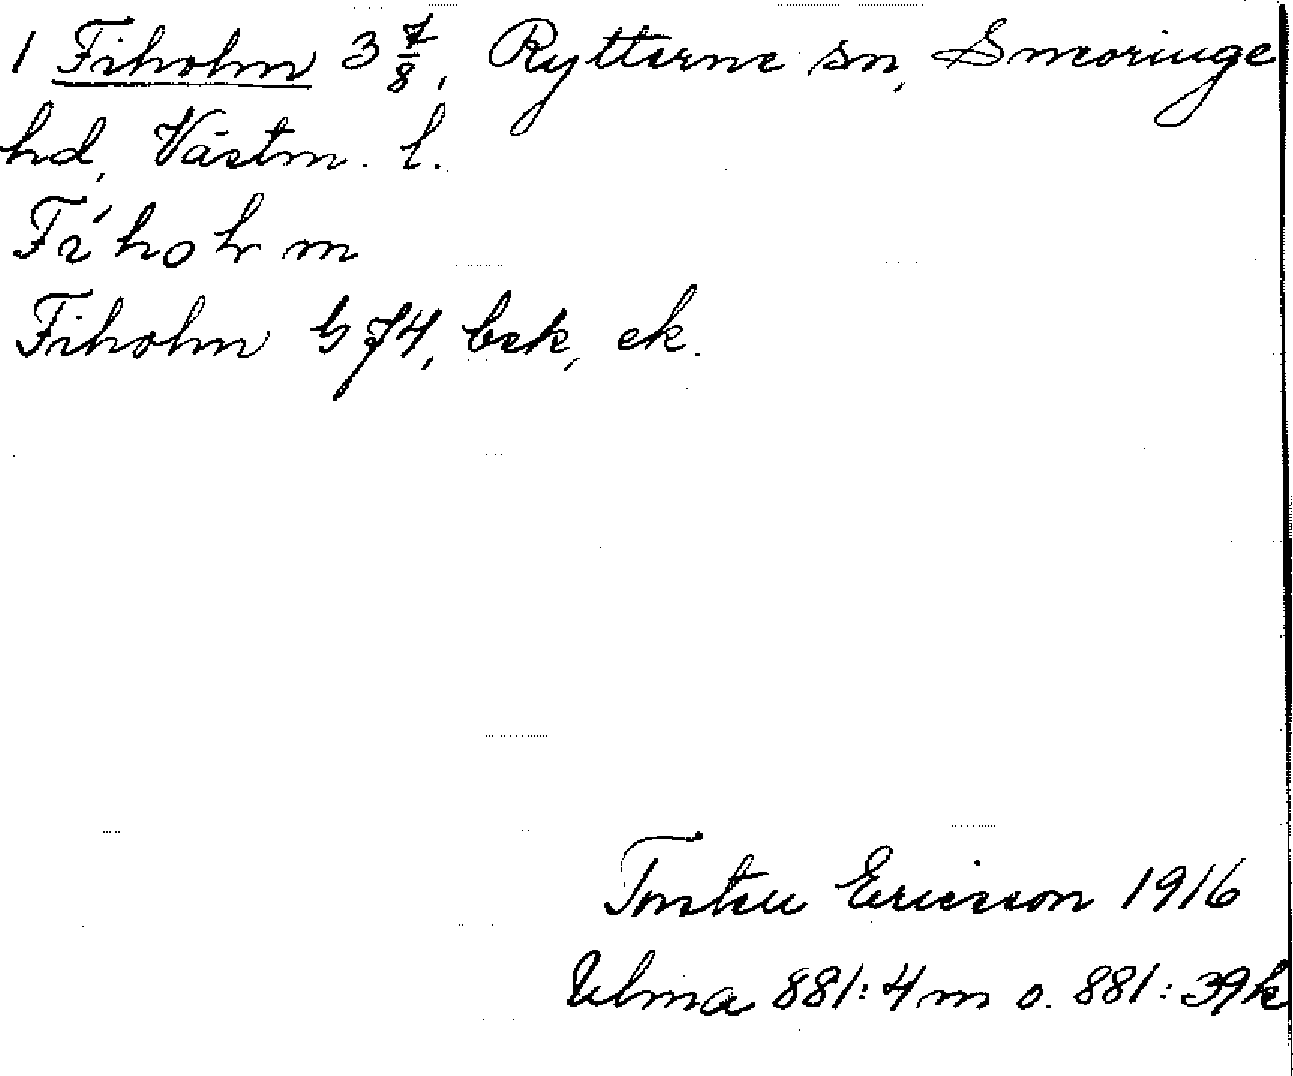 1 Fiholm 3 7/8, Rytterne sn, Snevringe
hd, Västm. l.
Fi´holm
Fiholm G74, bek, ek.
Torsten Ericsson 1916
Ulma 881:4 m o. 881:39k